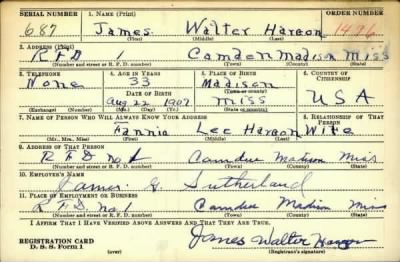 SERIAL NUMBER 1. NAME (Print) ORDER NUMBER
687 James Walter Haroon 1476
(First) (Middle) (Last)
2. ADDRESS (Print)
RFD 1 Camden Madison Miss
(Number and street or R. F. D. number) (Town) (County) (State)
3. TELEPHONE 4. AGE IN YEARS 5. PLACE OF BIRTH 6. COUNTRY OF CITIZENSHIP
None 33 Madison
DATE OF BIRTH (Town or county)
Aug 22 1907 Miss USA
(Exchange) (Number) (Mo.) (Day) (Yr.) (State or country)
7. NAME OF PERSON WHO WILL ALWAYS KNOW YOUR ADDRESS 8. RELATIONSHIP OF THAT PERSON
Fannie Lee Haroon Wife
(Mr., Mrs., Miss) (First) (Middle) (Last)
9. ADDRESS OF THAT PERSON
R.F.D. no 1 Camden Madison Miss
(Number and street or R. F. D. number) (Town) (County) (State)
10. EMPLOYER'S NAME
James Sutherland
11. PLACE OF EMPLOYMENT OR BUSINESS
R.F.D. no. 1 Camden Madison Miss
(Number and street or R. F. D. number) (Town) (County) (State)
I AFFIRM THAT I HAVE VERIFIED ABOVE ANSWERS AND THAT THEY ARE TRUE.
REGISTRATION CARD James Walter
D. S. S. Form 1 (over) (Registrant's signature)